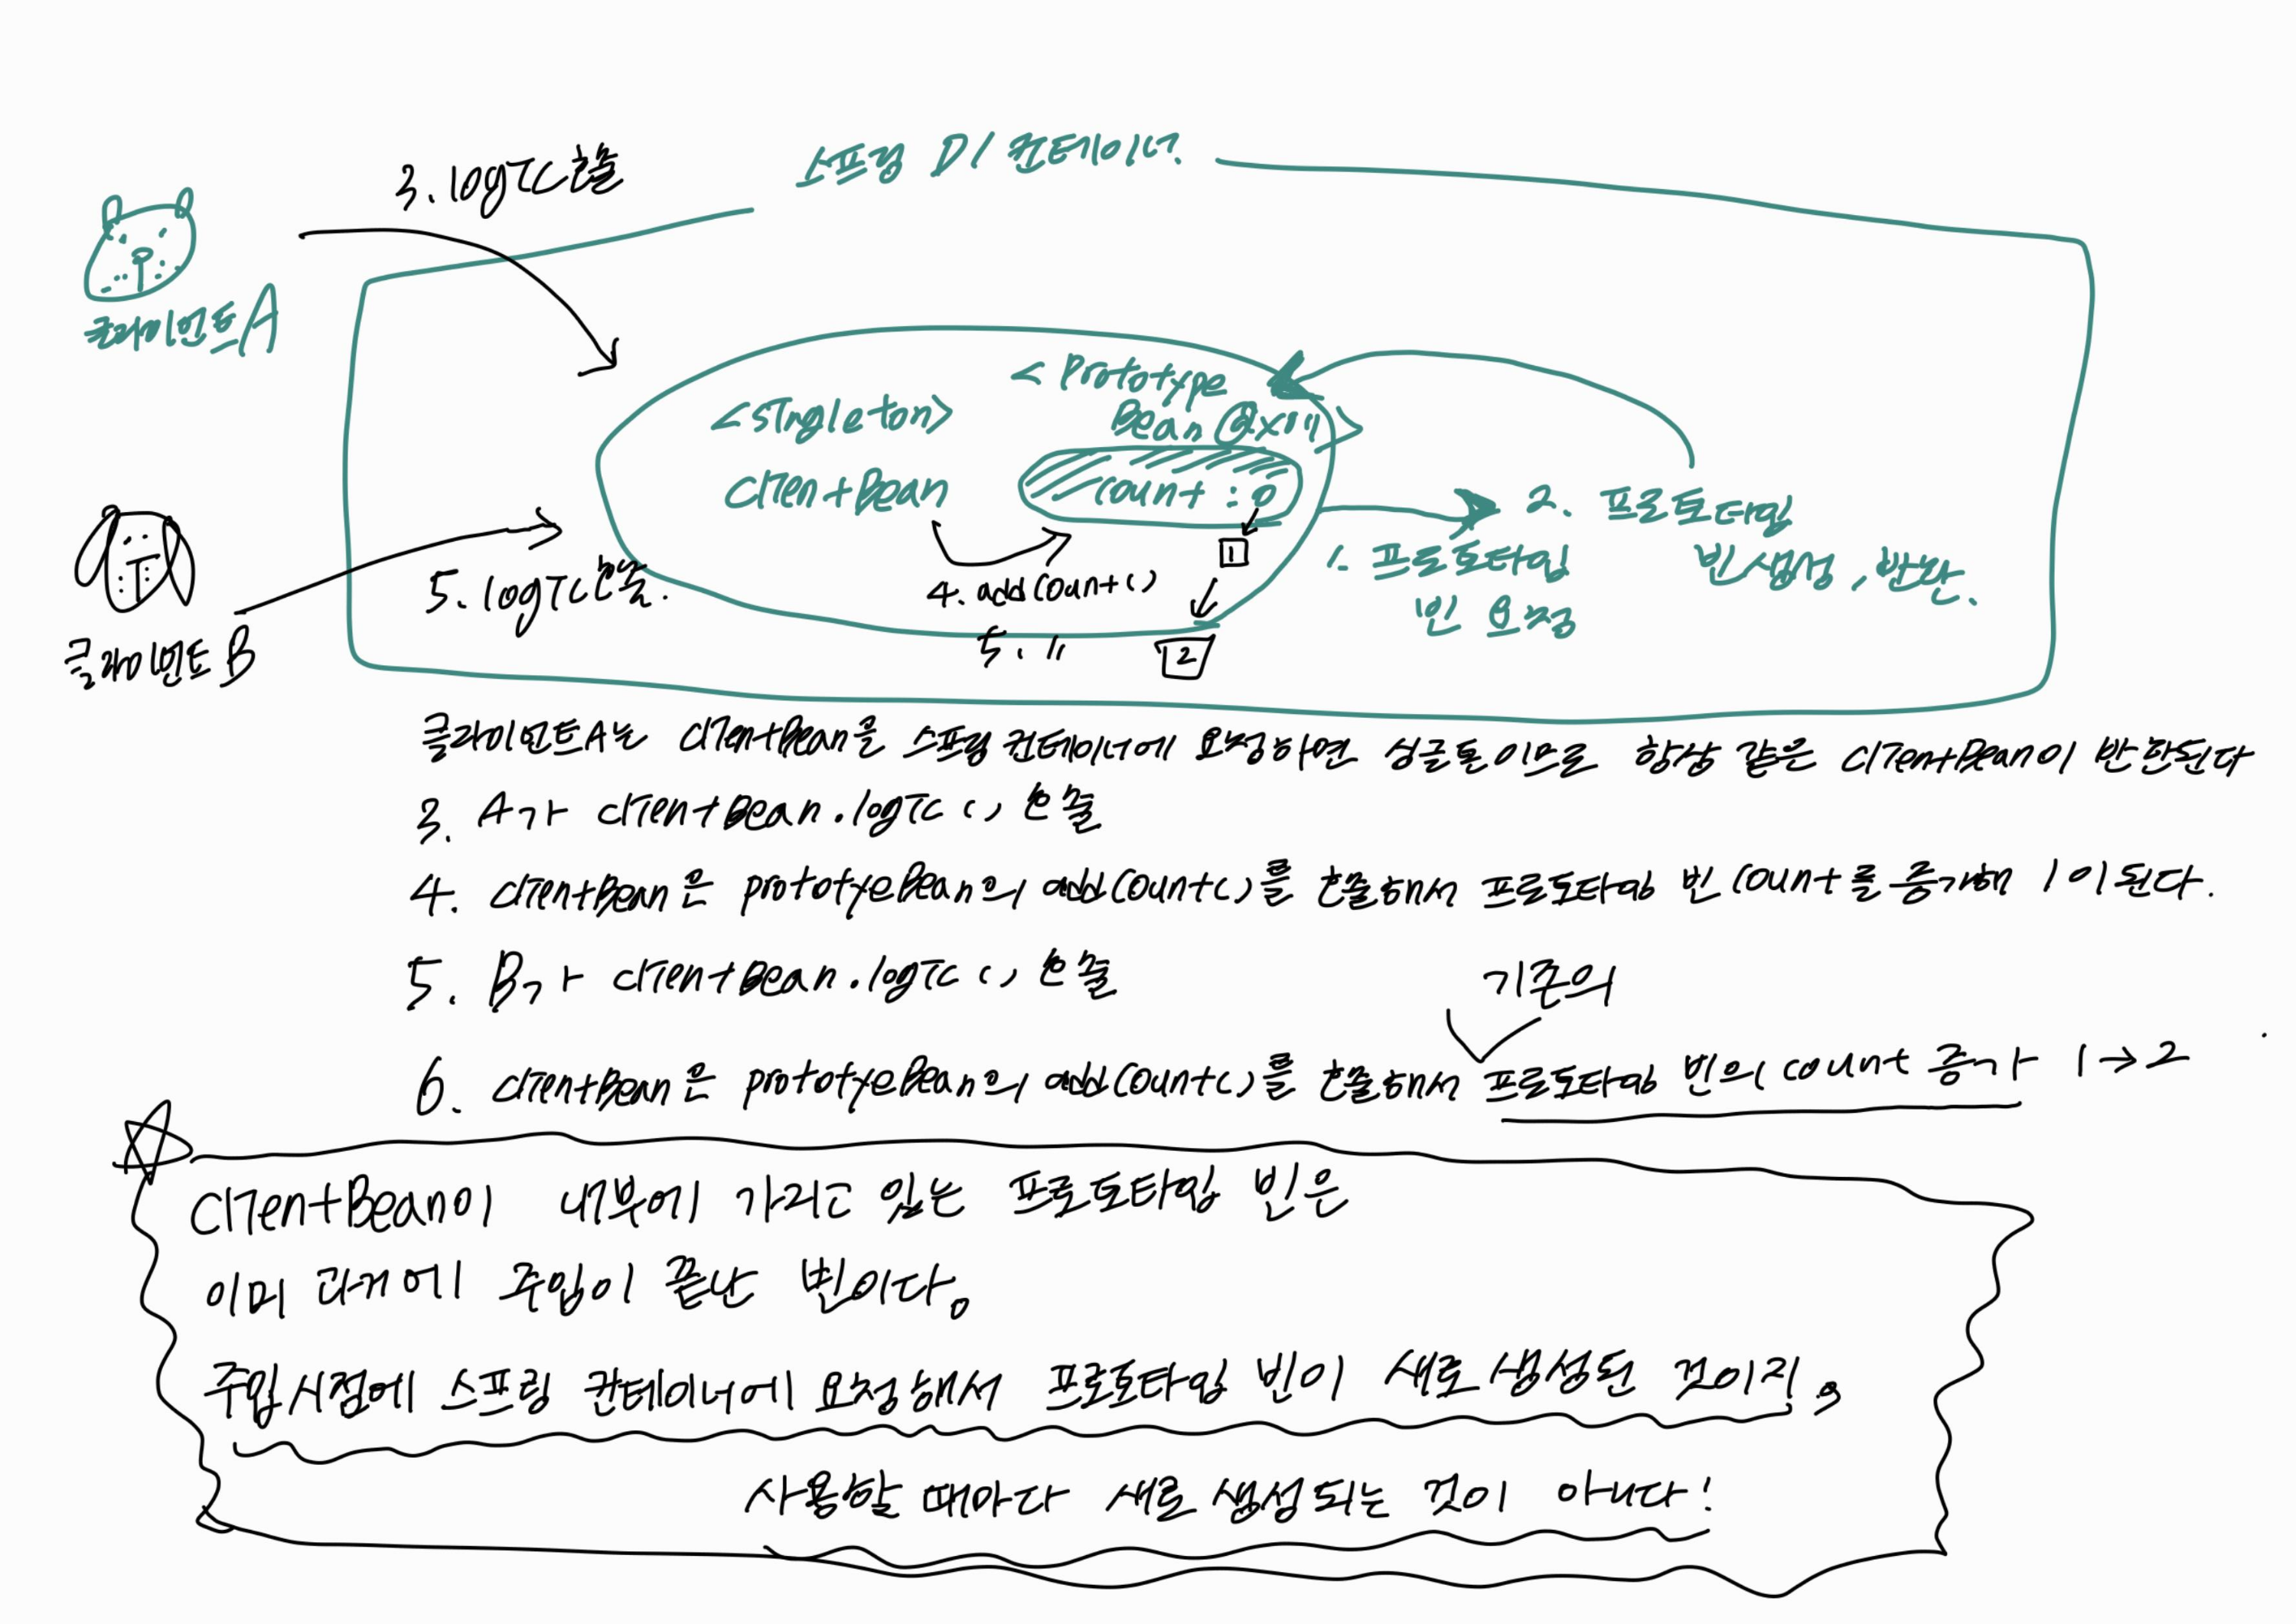 3. logic 호출
스프링 DI 컨테이너
클라이언트A
<singleton>
clientBean
<prototype
Bean@x01>
count : 0
1
2
4. addCount()
5. 〃
1. 프로토타입
빈 요청
2. 프로토타입
빈 생성, 반환.
5. logic 호출.
클라이언트 B
클라이언트A는 clientBean을 스프링 컨테이너에 요청하면 싱글톤이므로 항상 같은 clientBean이 반환된다
3. A가 clientBean.logic() 호출
4. clientBean은 prototyeBean의 addCount()를 호출해서 프로토타입 빈 count를 증가해 1이 된다.
5. B가 clientBean.logic() 호출
기존의
6. clientBean은 prototyeBean의 addCount()를 호출해서 프로토타입 빈의 count 증가 1→2
clientBean이 내부에 가지고 있는 프로토타입 빈은
이미 과거에 주입이 끝난 빈이다.
주입시점에 스프링 컨테이너에 요청해서 프로토타입 빈이 새로 생성된 것이지,
사용할 때마다 새로 생성되는 것이 아니다!